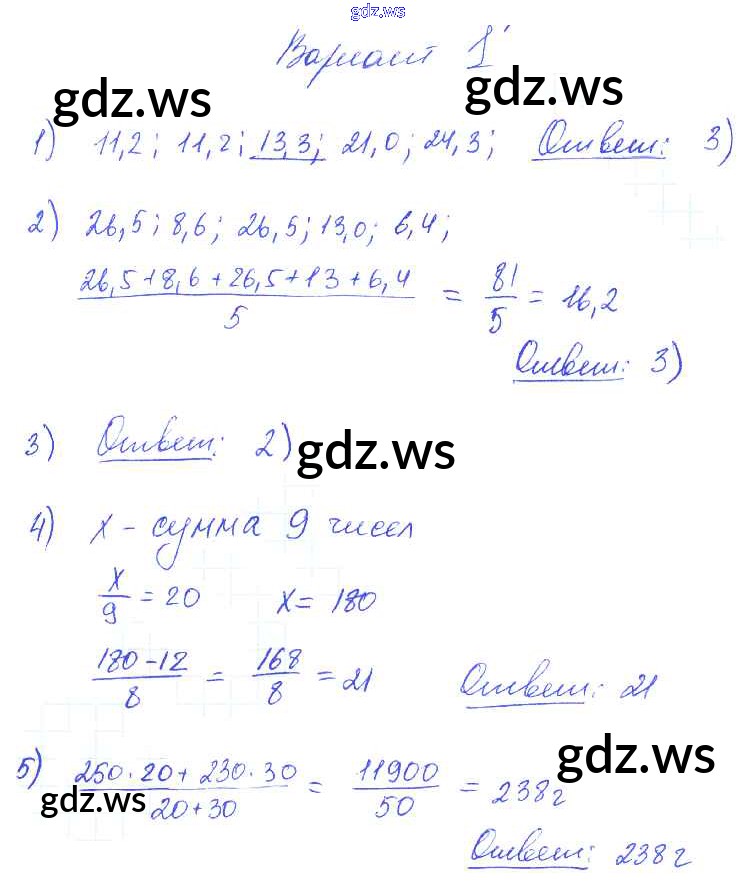 gdz.ws
Вариант 1
gdz.ws
gdz.ws
1) 11,2; 11,2; 13,3; 21,0; 24,3; Ответ: 3)
2) 26,5; 8,6; 26,5; 13,0; 6,4;
26,5+8,6+26,5+13+6,4 / 5 = 81/5 = 16,2
Ответ: 3)
3) Ответ: 2)
gdz.ws
4) x - сумма 9 чисел
x/9 = 20 x = 180
180-12 / 8 = 168/8 = 21 Ответ: 21
gdz.ws
5) 250·20+230·30 / 20+30 = 11900/50 = 238 г
gdz.ws
Ответ: 238 г